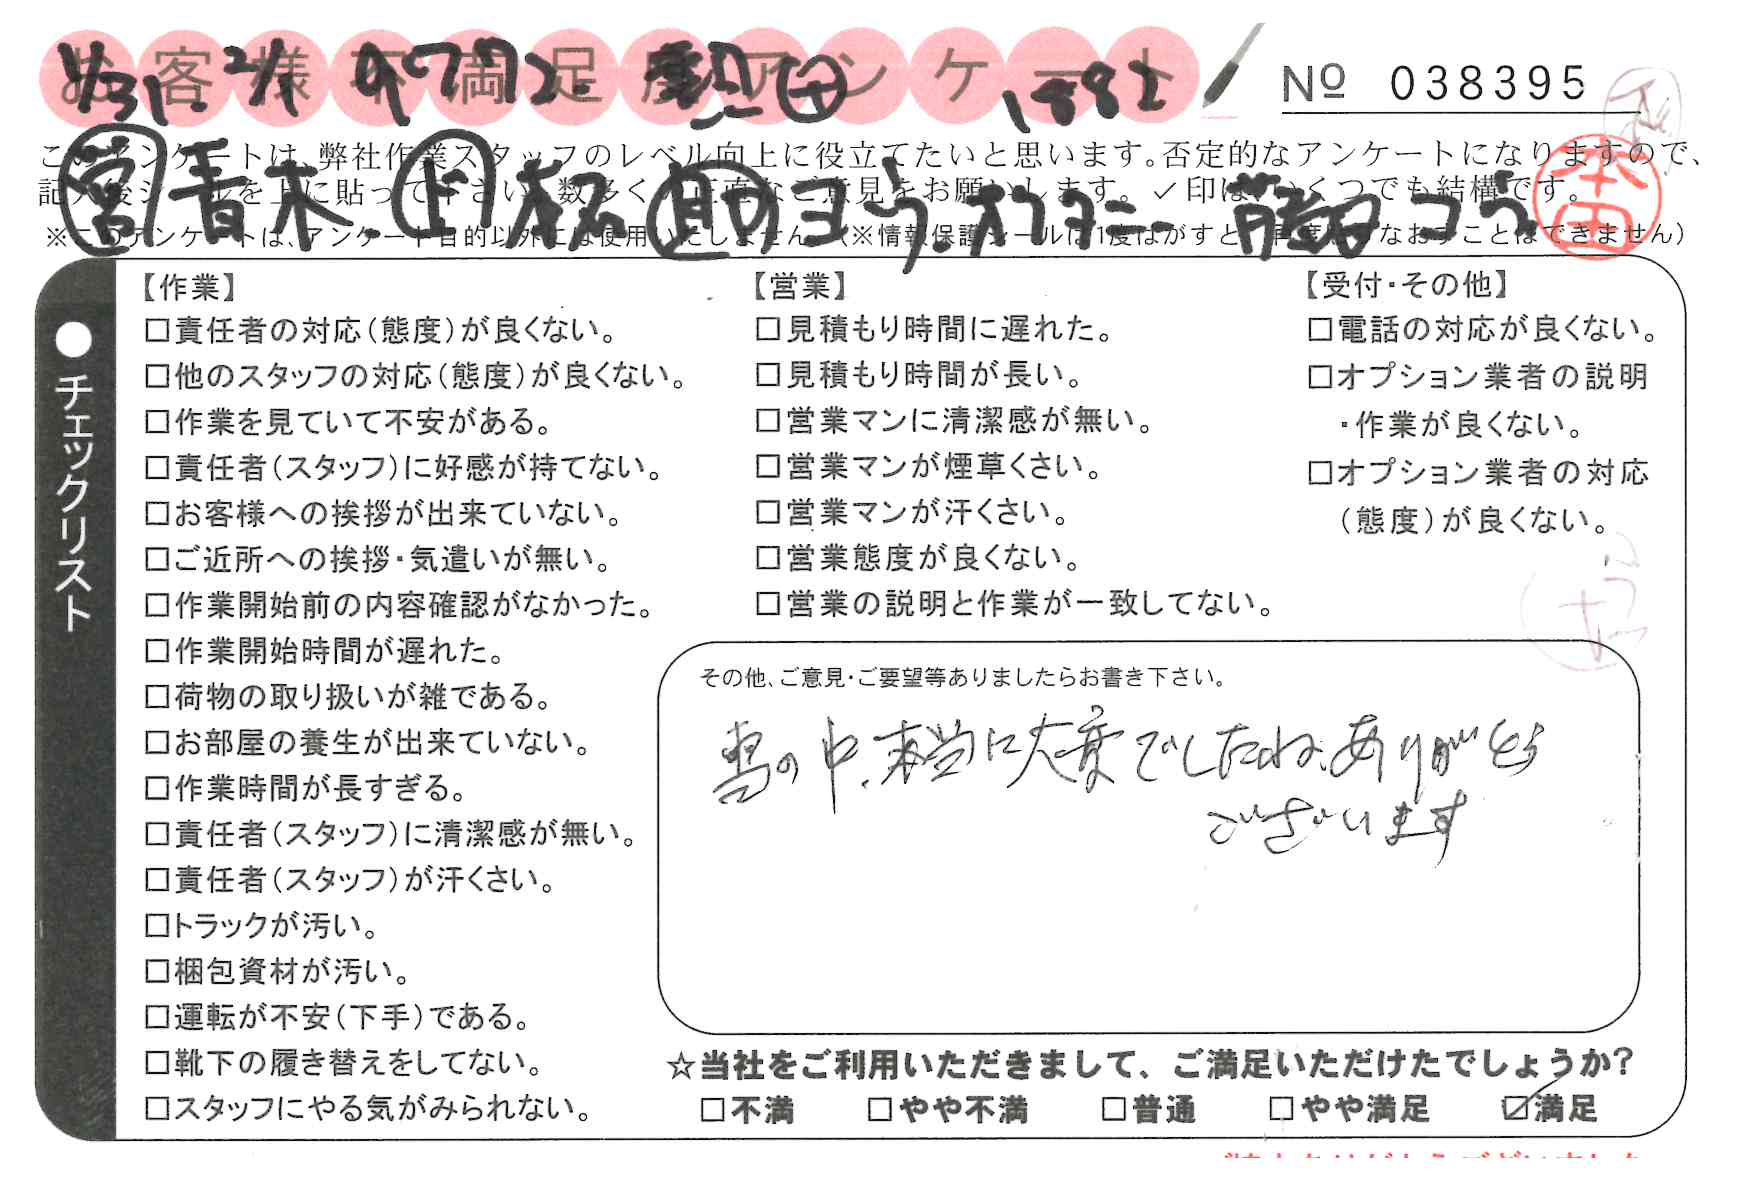 お客様不満足度アンケート
1/31. 2/1 9772. 熱田 1882
№ 038395
このアンケートは、弊社作業スタッフのレベル向上に役立てたいと思います。否定的なアンケートになりますので、
記入後シールを上に貼って下さい。数多くの正直なご意見をお願いします。✓印はいくつでも結構です。
※このアンケートは、アンケート目的以外には使用いたしません。(※情報保護シールは1度はがすと、再度はりなおすことはできません)
営 青木
本田
●チェックリスト
【作業】
□責任者の対応(態度)が良くない。
□他のスタッフの対応(態度)が良くない。
□作業を見ていて不安がある。
□責任者(スタッフ)に好感が持てない。
□お客様への挨拶が出来ていない。
□ご近所への挨拶・気遣いが無い。
□作業開始前の内容確認がなかった。
□作業開始時間が遅れた。
□荷物の取り扱いが雑である。
□お部屋の養生が出来ていない。
□作業時間が長すぎる。
□責任者(スタッフ)に清潔感が無い。
□責任者(スタッフ)が汗くさい。
□トラックが汚い。
□梱包資材が汚い。
□運転が不安(下手)である。
□靴下の履き替えをしてない。
□スタッフにやる気がみられない。
【営業】
□見積もり時間に遅れた。
□見積もり時間が長い。
□営業マンに清潔感が無い。
□営業マンが煙草くさい。
□営業マンが汗くさい。
□営業態度が良くない。
□営業の説明と作業が一致してない。
【受付・その他】
□電話の対応が良くない。
□オプション業者の説明
・作業が良くない。
□オプション業者の対応
(態度)が良くない。
その他、ご意見・ご要望等ありましたらお書き下さい。
雪の中、本当に大変でしたね、ありがとう
ございます
☆当社をご利用いただきまして、ご満足いただけたでしょうか?
□不満 □やや不満 □普通 □やや満足 ☑満足